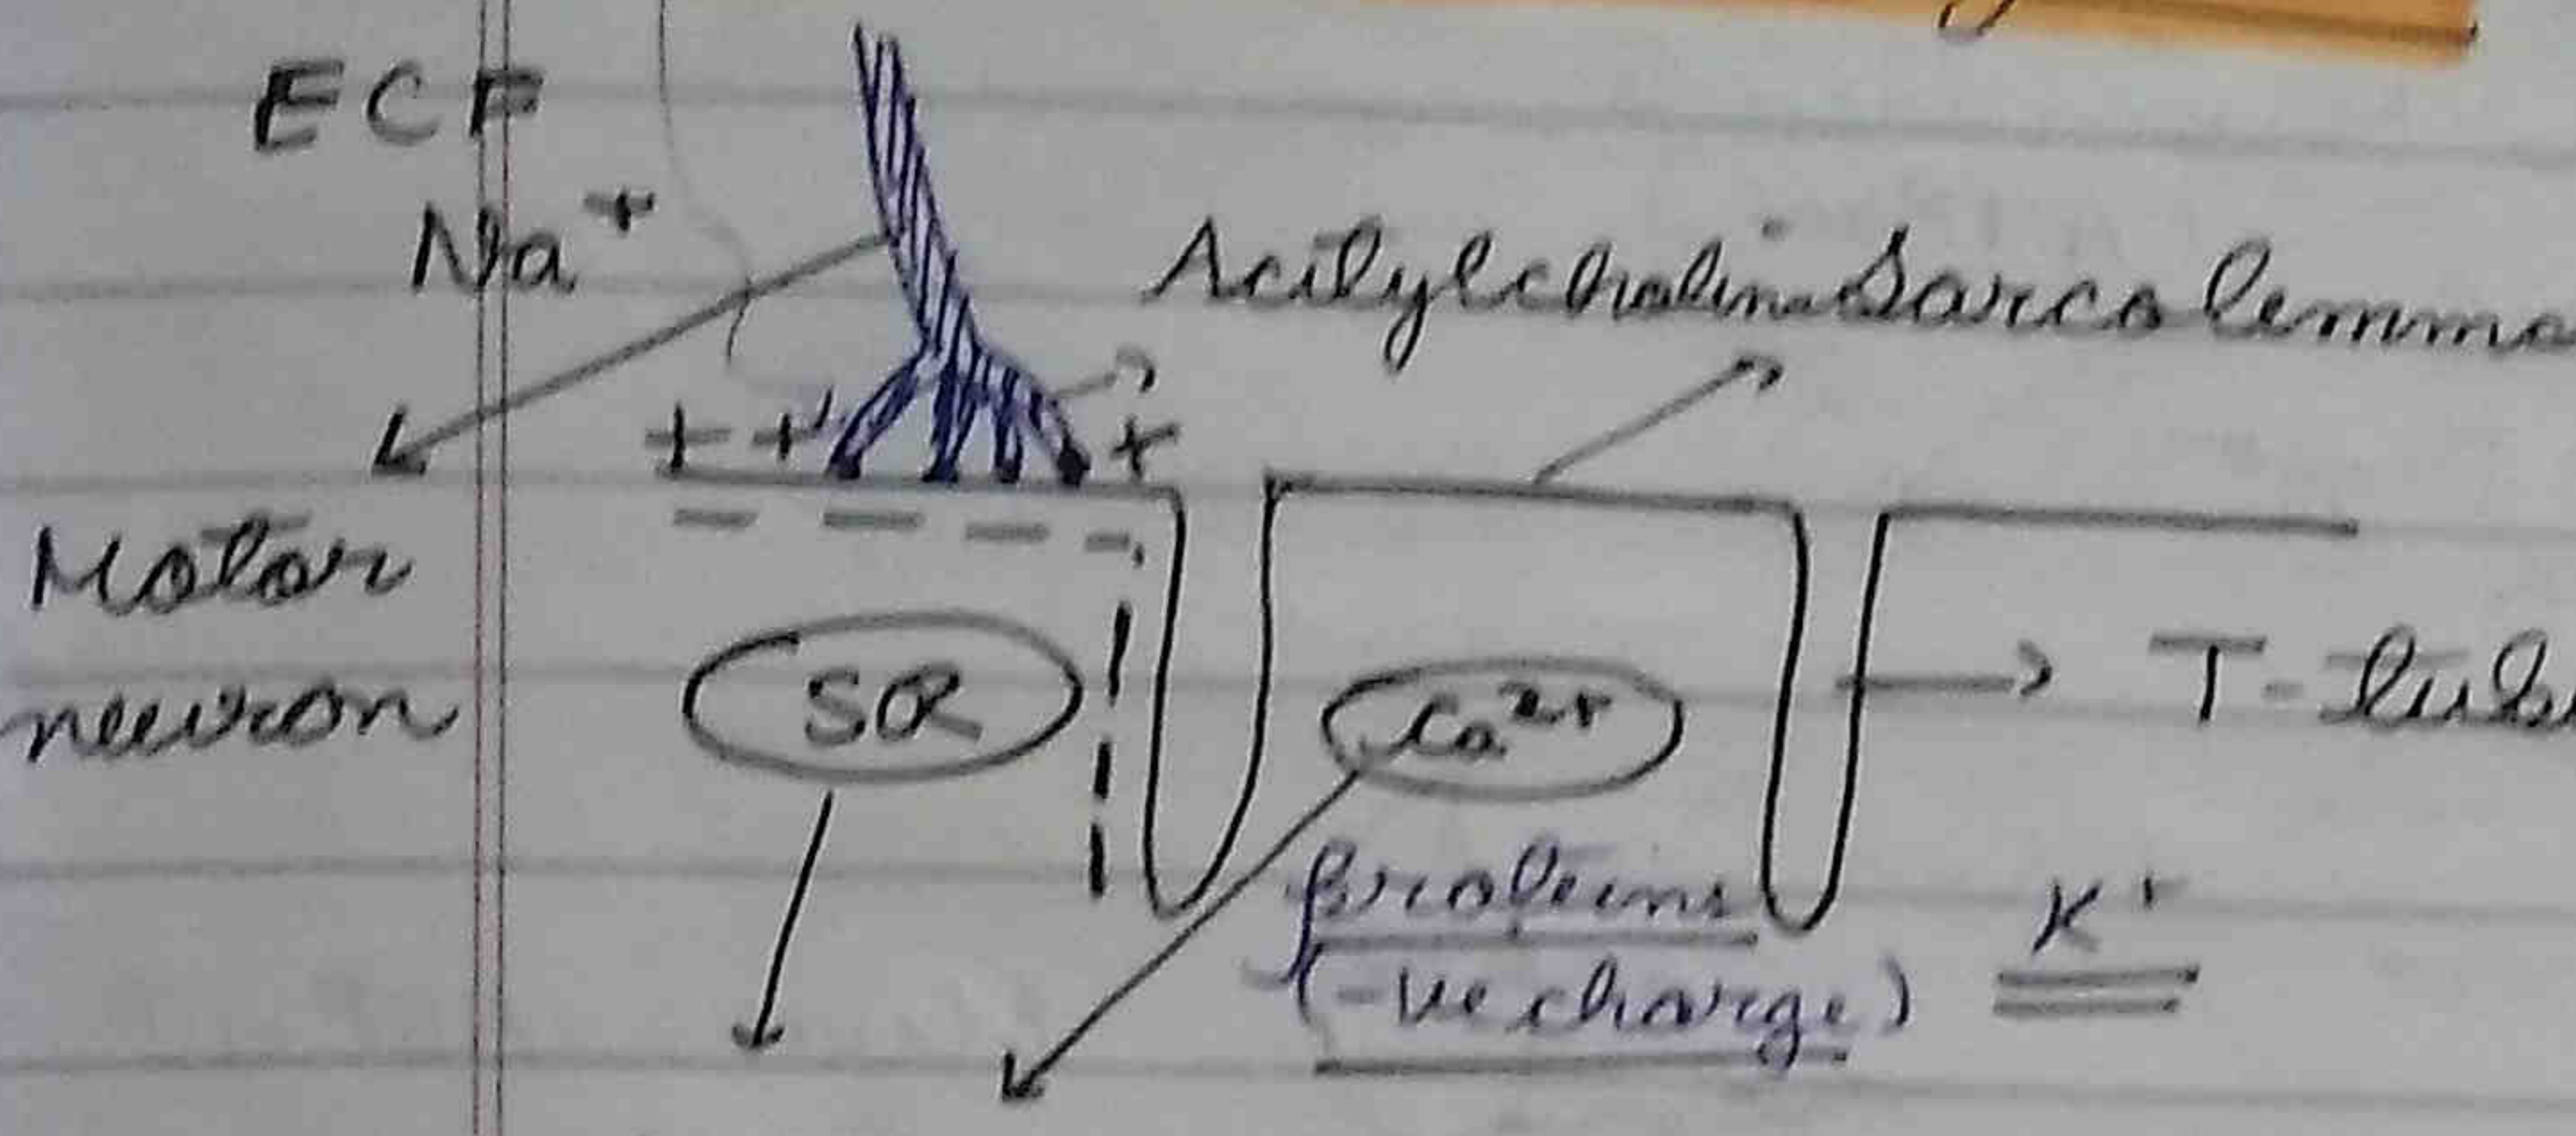 ECF
Na⁺
Acitylcholine Sarcolemma
+ + +
− − − −
Motor
neuron
SR
Ca²⁺
T-tub
proteins
(-ve charge)
K⁺